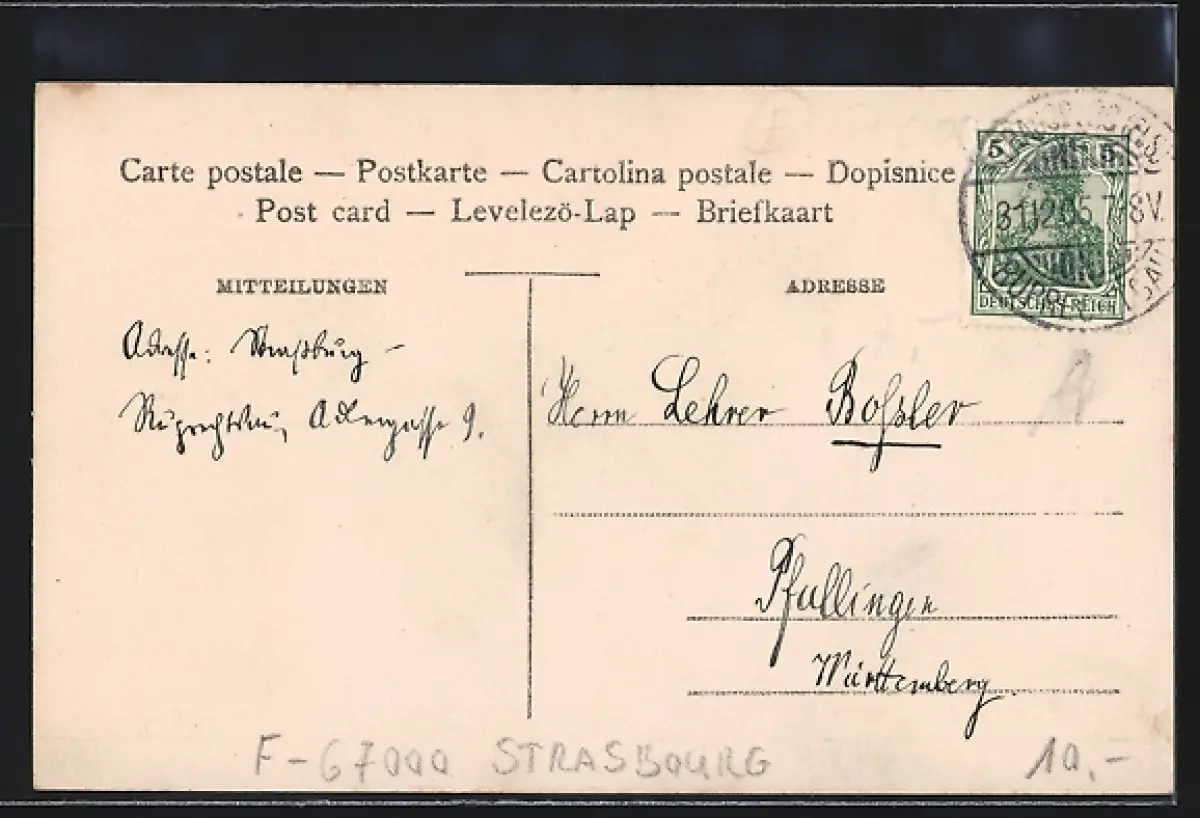 Carte postale — Postkarte — Cartolina postale — Dopisnice
Post card — Levelezö-Lap — Briefkaart
MITTEILUNGEN
ADRESSE
5
31.12.05.7-8V.
DEUTSCHES REICH
Adresse: Straßburg –
Ruprechtsau, Adlergasse 9.
Herrn Lehrer Boßler
Pfullingen
Württemberg
F-67000 STRASBOURG
10.-